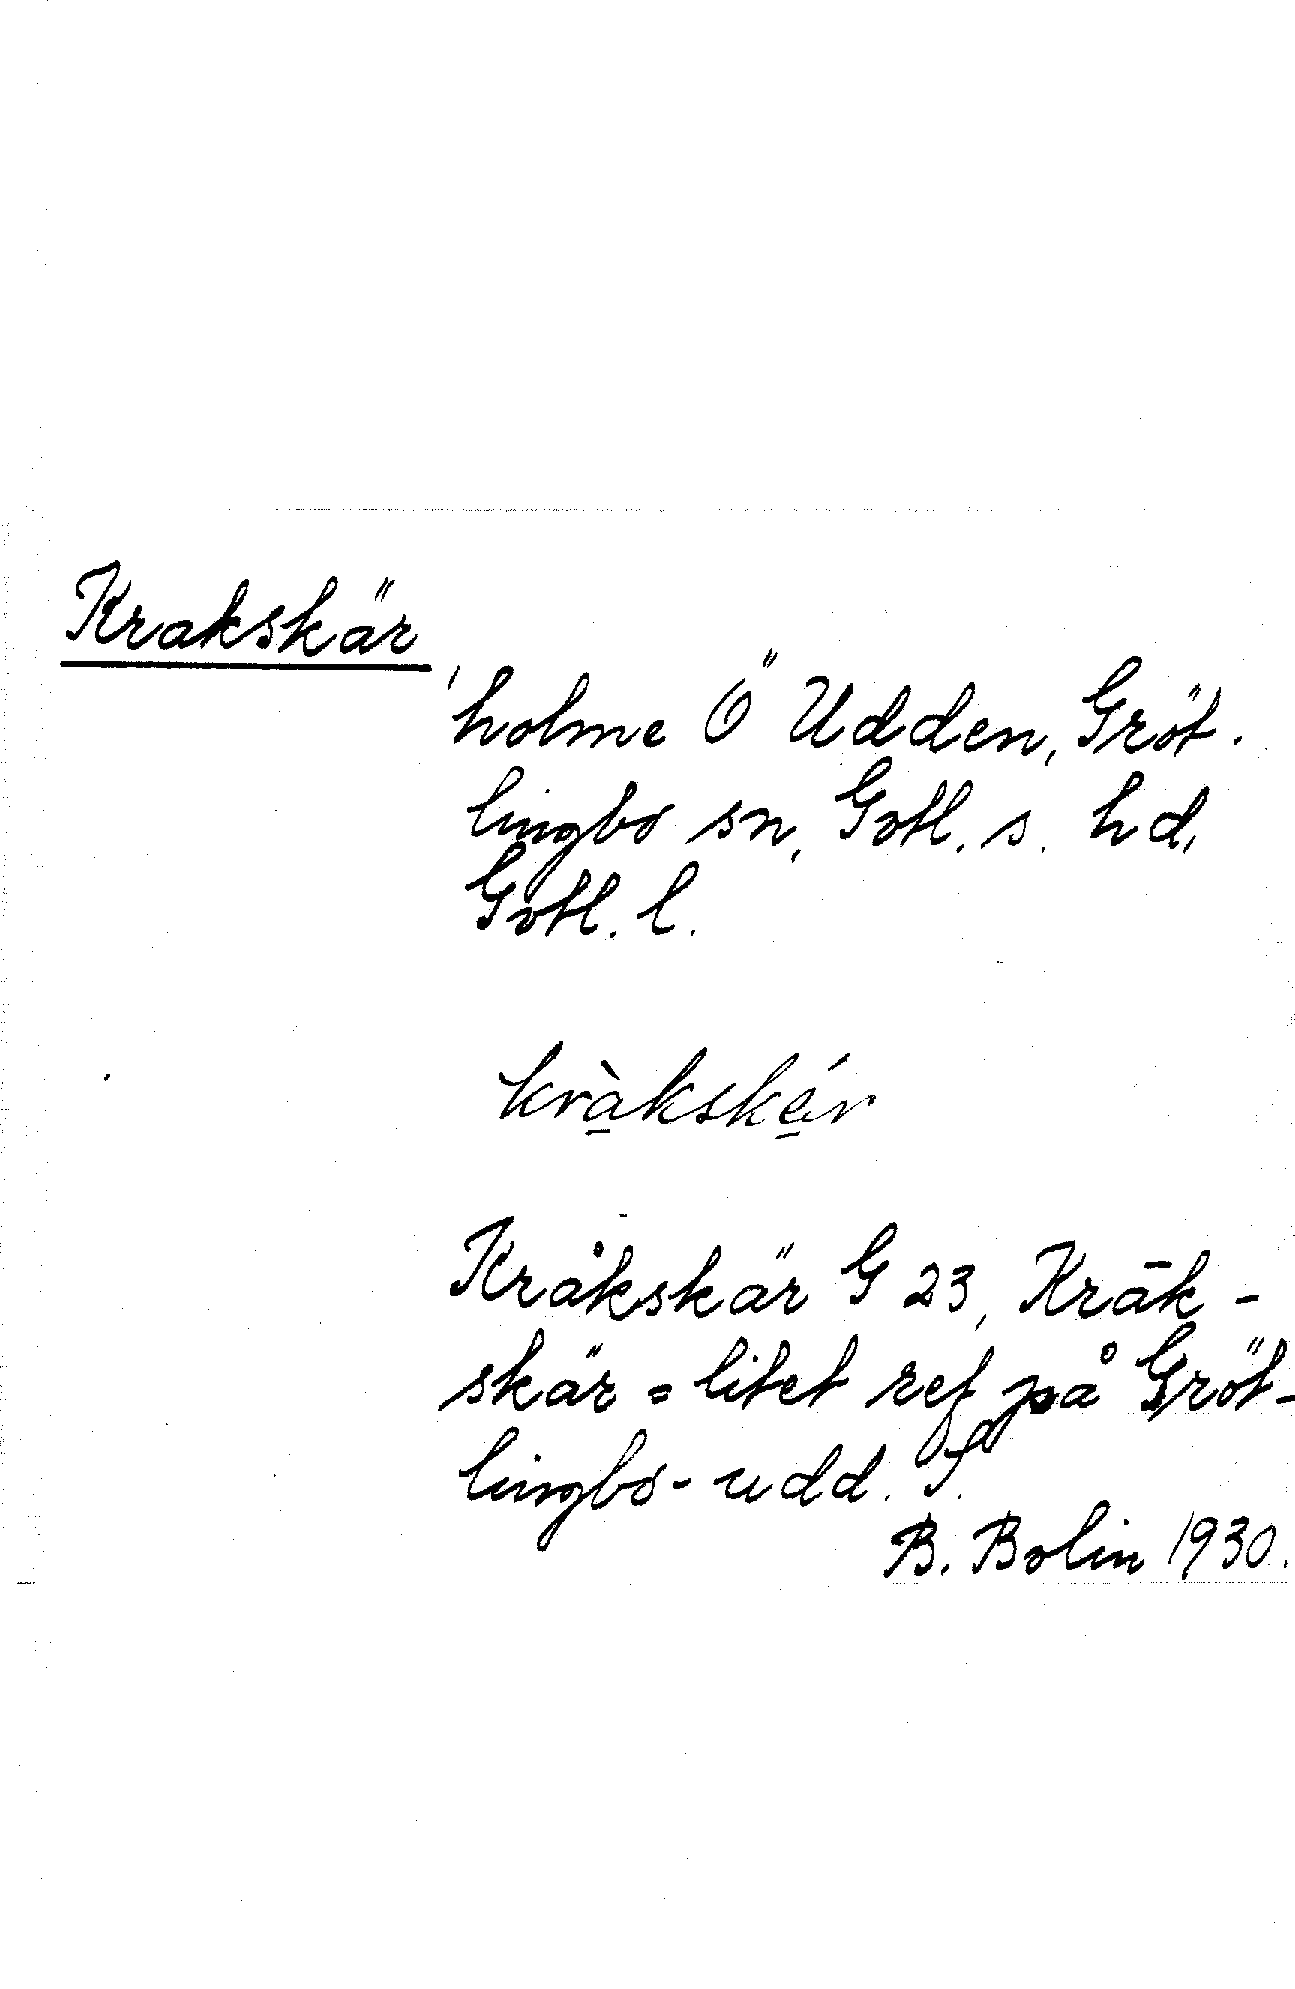 Krakskär
'holme Ö Udden, Gröt.
lingbo sn, Gotl. s. hd,
Gotl. l.
kràkskér
Kråkskär G 23, Krāk-
skär = litet ref på Gröt-
lingbo-udd. S.
B. Bolin 1930.